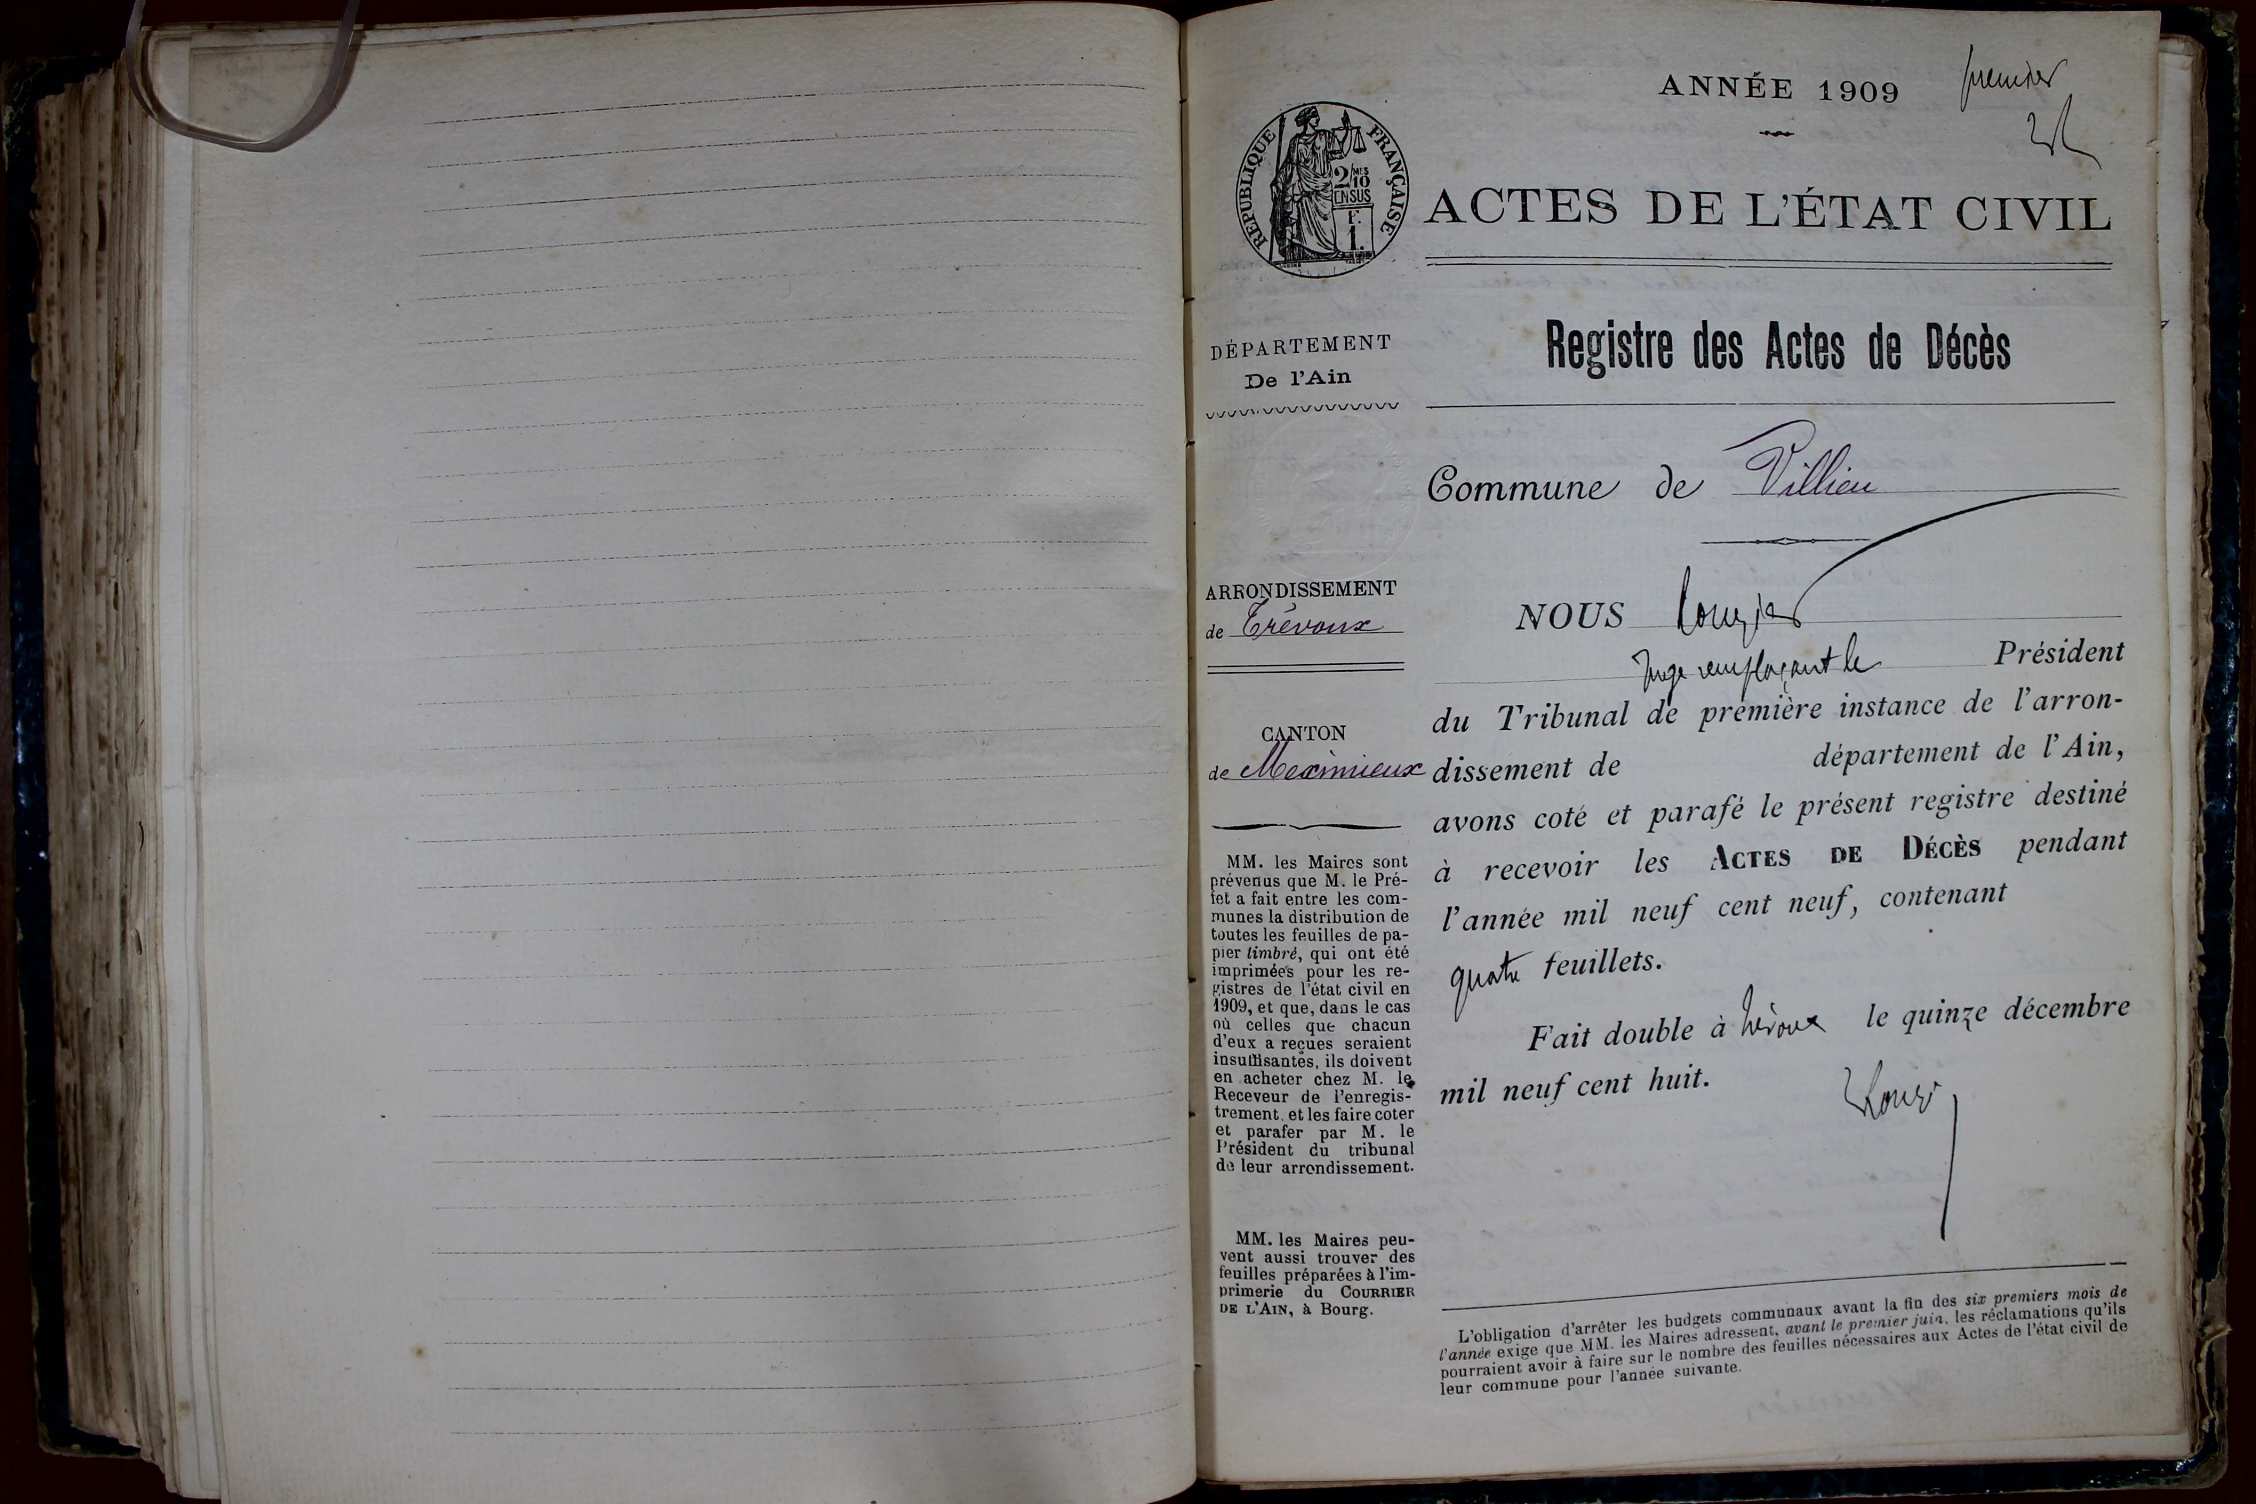 ANNÉE 1909
premier
RÉPUBLIQUE FRANÇAISE
2 MES
10
EN SUS
F.
1.
ACTES DE L'ÉTAT CIVIL
DÉPARTEMENT
De l'Ain
ARRONDISSEMENT
de Trévoux
CANTON
de Meximieux
MM. les Maires sont
prévenus que M. le Pré-
fet a fait entre les com-
munes la distribution de
toutes les feuilles de pa-
pier timbré, qui ont été
imprimées pour les re-
gistres de l'état civil en
1909, et que, dans le cas
où celles que chacun
d'eux a reçues seraient
insuffisantes, ils doivent
en acheter chez M. le
Receveur de l'enregis-
trement, et les faire coter
et parafer par M. le
Président du tribunal
de leur arrondissement.
MM. les Maires peu-
vent aussi trouver des
feuilles préparées à l'im-
primerie du COURRIER
DE L'AIN, à Bourg.
Registre des Actes de Décès
Commune de Villieu
NOUS
Juge remplaçant le Président
du Tribunal de première instance de l'arron-
dissement de département de l'Ain,
avons coté et parafé le présent registre destiné
à recevoir les ACTES DE DÉCÈS pendant
l'année mil neuf cent neuf, contenant
quatre feuillets.
Fait double à Trévoux le quinze décembre
mil neuf cent huit.
L'obligation d'arrêter les budgets communaux avant la fin des six premiers mois de
l'année exige que MM. les Maires adressent, avant le premier juin, les réclamations qu'ils
pourraient avoir à faire sur le nombre des feuilles nécessaires aux Actes de l'état civil de
leur commune pour l'année suivante.